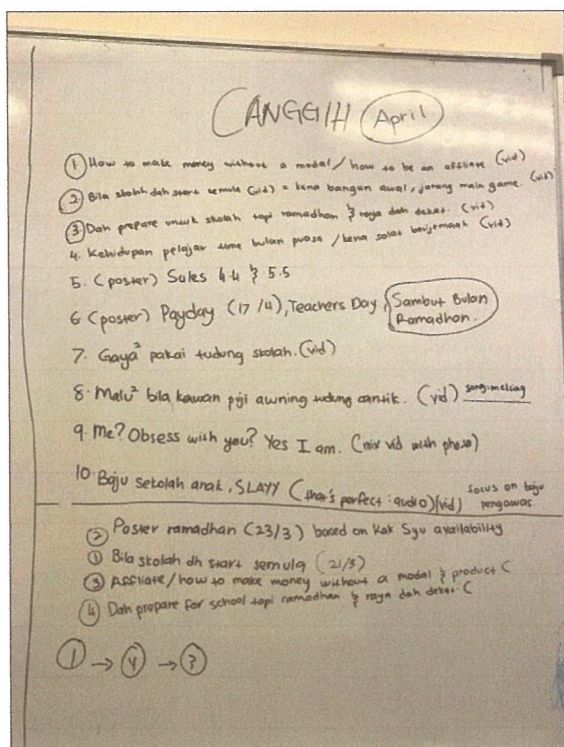 CANGGIH April
① How to make money without a modal / how to be an affliate (vid)
② Bila skolah dah start semula (vid) = kena bangun awal, jarang main game. (vid)
③ Dah prepare untuk skolah tapi ramadhan & raya dah dekat. (vid)
4. Kehidupan pelajar time bulan puasa / kena solat berjemaah (vid)
5. (poster) Sales 4.4 & 5.5
6 (poster) Payday (17/4), Teachers Day, Sambut Bulan Ramadhan.
7. Gaya² pakai tudung skolah. (vid)
8. Malu² bila kawan puji awning tudung cantik. (vid)
9. Me? Obsess with you? Yes I am. (mix vid with photo)
10. Baju sekolah anak, SLAYY (that's perfect : audio) (vid) focus on baju pengawas
② Poster ramadhan (23/3) based on Kak Syu availability
① Bila skolah dh start semula (21/3)
③ Affliate / how to make money without a modal & product (
④ Dah prepare for school tapi ramadhan & raya dah dekat. (
① → ④ → ③